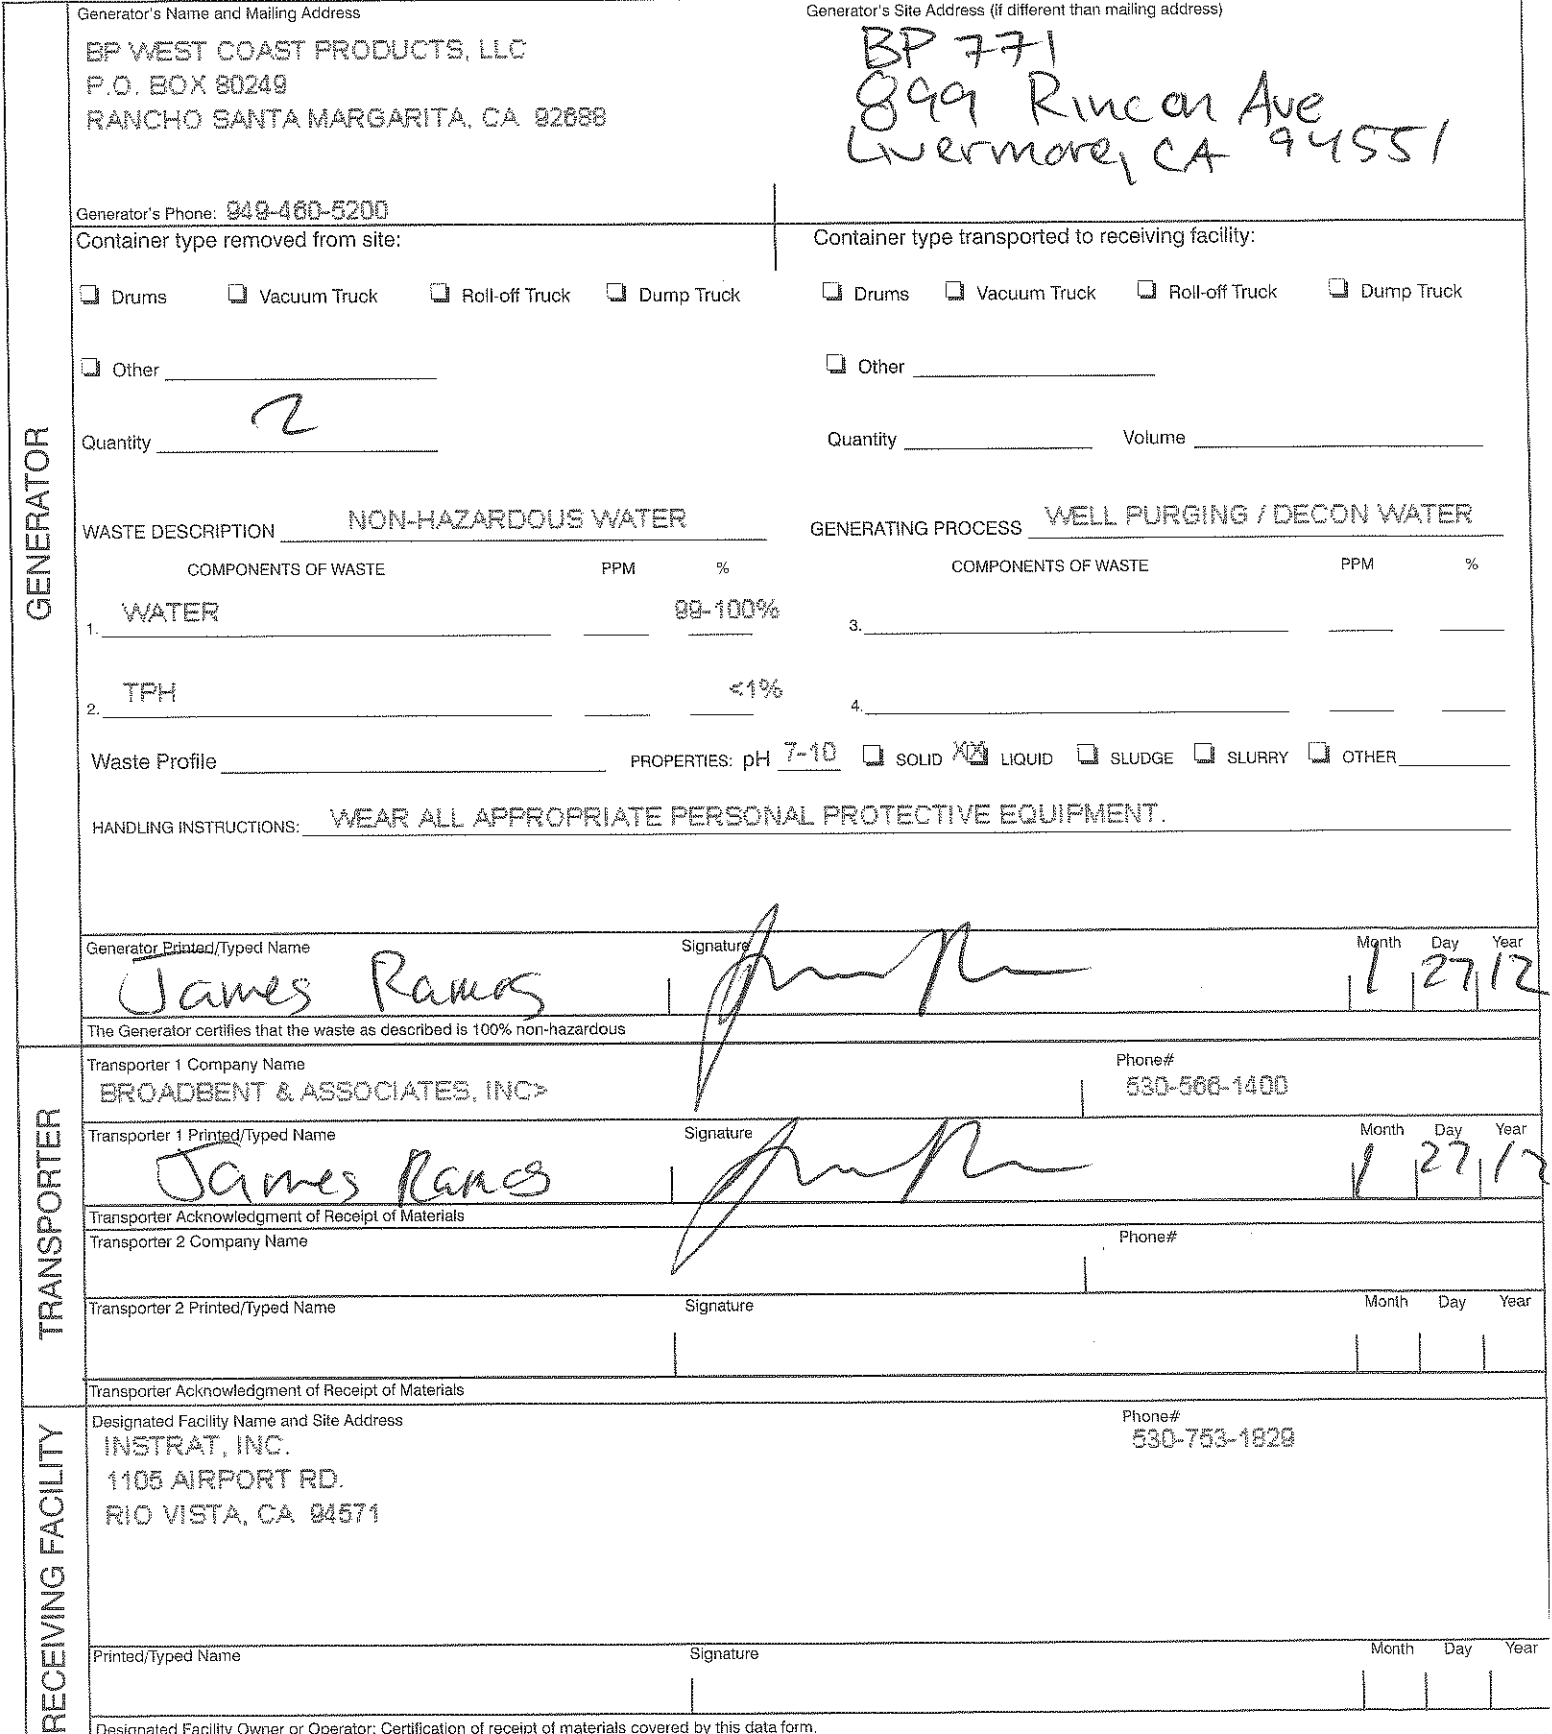 Generator's Name and Mailing Address
BP WEST COAST PRODUCTS, LLC
P.O. BOX 80249
RANCHO SANTA MARGARITA, CA 92688
Generator's Phone: 949-460-5200
Generator's Site Address (if different than mailing address)
BP 771
899 Rincon Ave
Livermore, CA 94551
Container type removed from site:
Drums Vacuum Truck Roll-off Truck Dump Truck
Other
Quantity 2
Container type transported to receiving facility:
Drums Vacuum Truck Roll-off Truck Dump Truck
Other
Quantity Volume
GENERATOR
WASTE DESCRIPTION NON-HAZARDOUS WATER GENERATING PROCESS WELL PURGING / DECON WATER
COMPONENTS OF WASTE PPM % COMPONENTS OF WASTE PPM %
1. WATER 99-100% 3.
2. TPH <1% 4.
Waste Profile PROPERTIES: pH 7-10 SOLID XX LIQUID SLUDGE SLURRY OTHER
HANDLING INSTRUCTIONS: WEAR ALL APPROPRIATE PERSONAL PROTECTIVE EQUIPMENT.
Generator Printed/Typed Name Signature Month Day Year
James Ramos 1 27 12
The Generator certifies that the waste as described is 100% non-hazardous
TRANSPORTER
Transporter 1 Company Name Phone#
BROADBENT & ASSOCIATES, INC> 530-566-1400
Transporter 1 Printed/Typed Name Signature Month Day Year
James Ramos 1 27 12
Transporter Acknowledgment of Receipt of Materials
Transporter 2 Company Name Phone#
Transporter 2 Printed/Typed Name Signature Month Day Year
Transporter Acknowledgment of Receipt of Materials
RECEIVING FACILITY
Designated Facility Name and Site Address Phone#
INSTRAT, INC. 530-753-1829
1105 AIRPORT RD.
RIO VISTA, CA 94571
Printed/Typed Name Signature Month Day Year
Designated Facility Owner or Operator: Certification of receipt of materials covered by this data form.